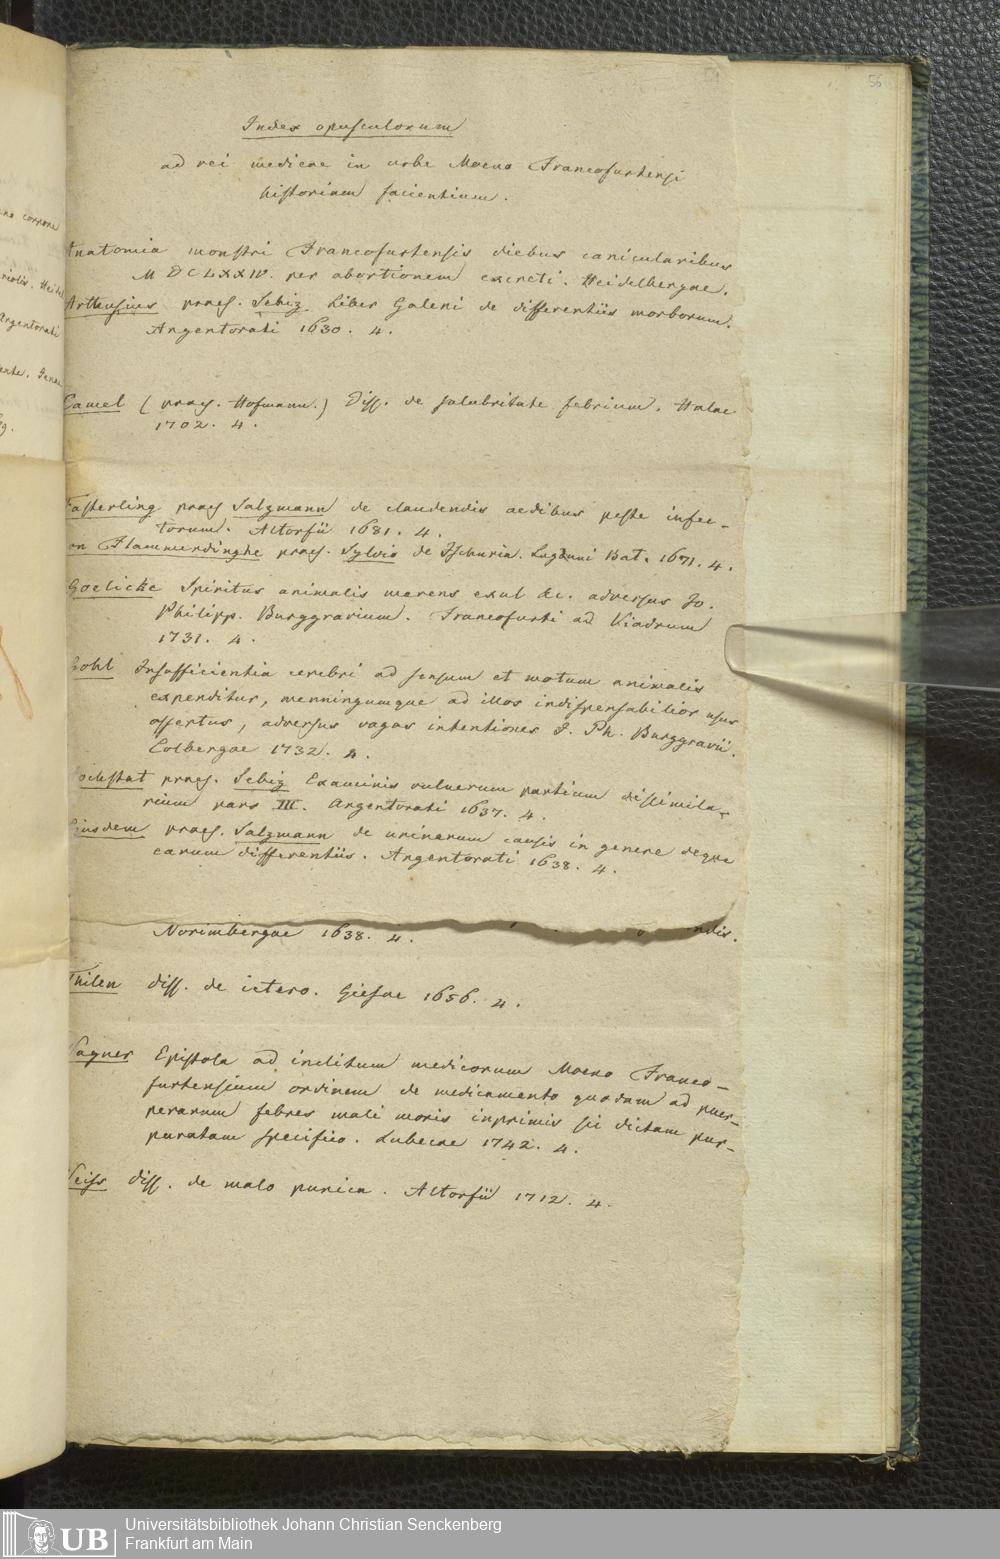 56
Index opusculorum
ad rei medicae in urbe Moeno Francofurtensi
historiam facientium.
Anatomia monstri Francofurtensis diebus canicularibus
MDCLXXIV. per abortionem excreti. Heidelbergae.
Arttensius praes. Sebiz Liber Galeni de differentiis morborum.
Argentorati 1630. 4.
Camel (praes. Hofmann.) Diss. de salubritate febrium. Halae
1702. 4.
Fasterling praes Salzmann de claudendis aedibus peste infec-
torum. Altorfii 1681. 4.
on Flammerdinghe praes. Sylvio de Ischuria. Lugduni Bat. 1671. 4.
Goelicke Spiritus animalis merens exul &c. adversus Jo.
Philipp. Burggravium. Francofurti ad Viadrum
1731. 4.
Gohl Insufficientia cerebri ad sensum et motum animalis
expenditur, menningumque ad illos indispensabilior usus
assertus, adversus vagas intentiones J. Ph. Burggravii.
Colbergae 1732. 4.
Hochstat praes. Sebiz Examinis vulnerum partium dissimila-
rium pars III. Argentorati 1637. 4.
Ejusdem praes. Salzmann de urinarum causis in genere deque
earum differentiis. Argentorati 1638. 4.
ndis.
Norimbergae 1638. 4.
Thilen diss. de ictero. Giesae 1656. 4.
Wagner Epistola ad inclitum medicorum Moeno Franco-
furtensium ordinem de medicamento quodam ad puer-
perarum febres mali moris inprimis sic dictam pur-
puratam specifico. Lubecae 1742. 4.
Weiss diss. de malo punica. Altorfii 1712. 4.
no corpore
riolis. Heidel
Argentorati
ente. Jenae
UB
Universitätsbibliothek Johann Christian Senckenberg
Frankfurt am Main